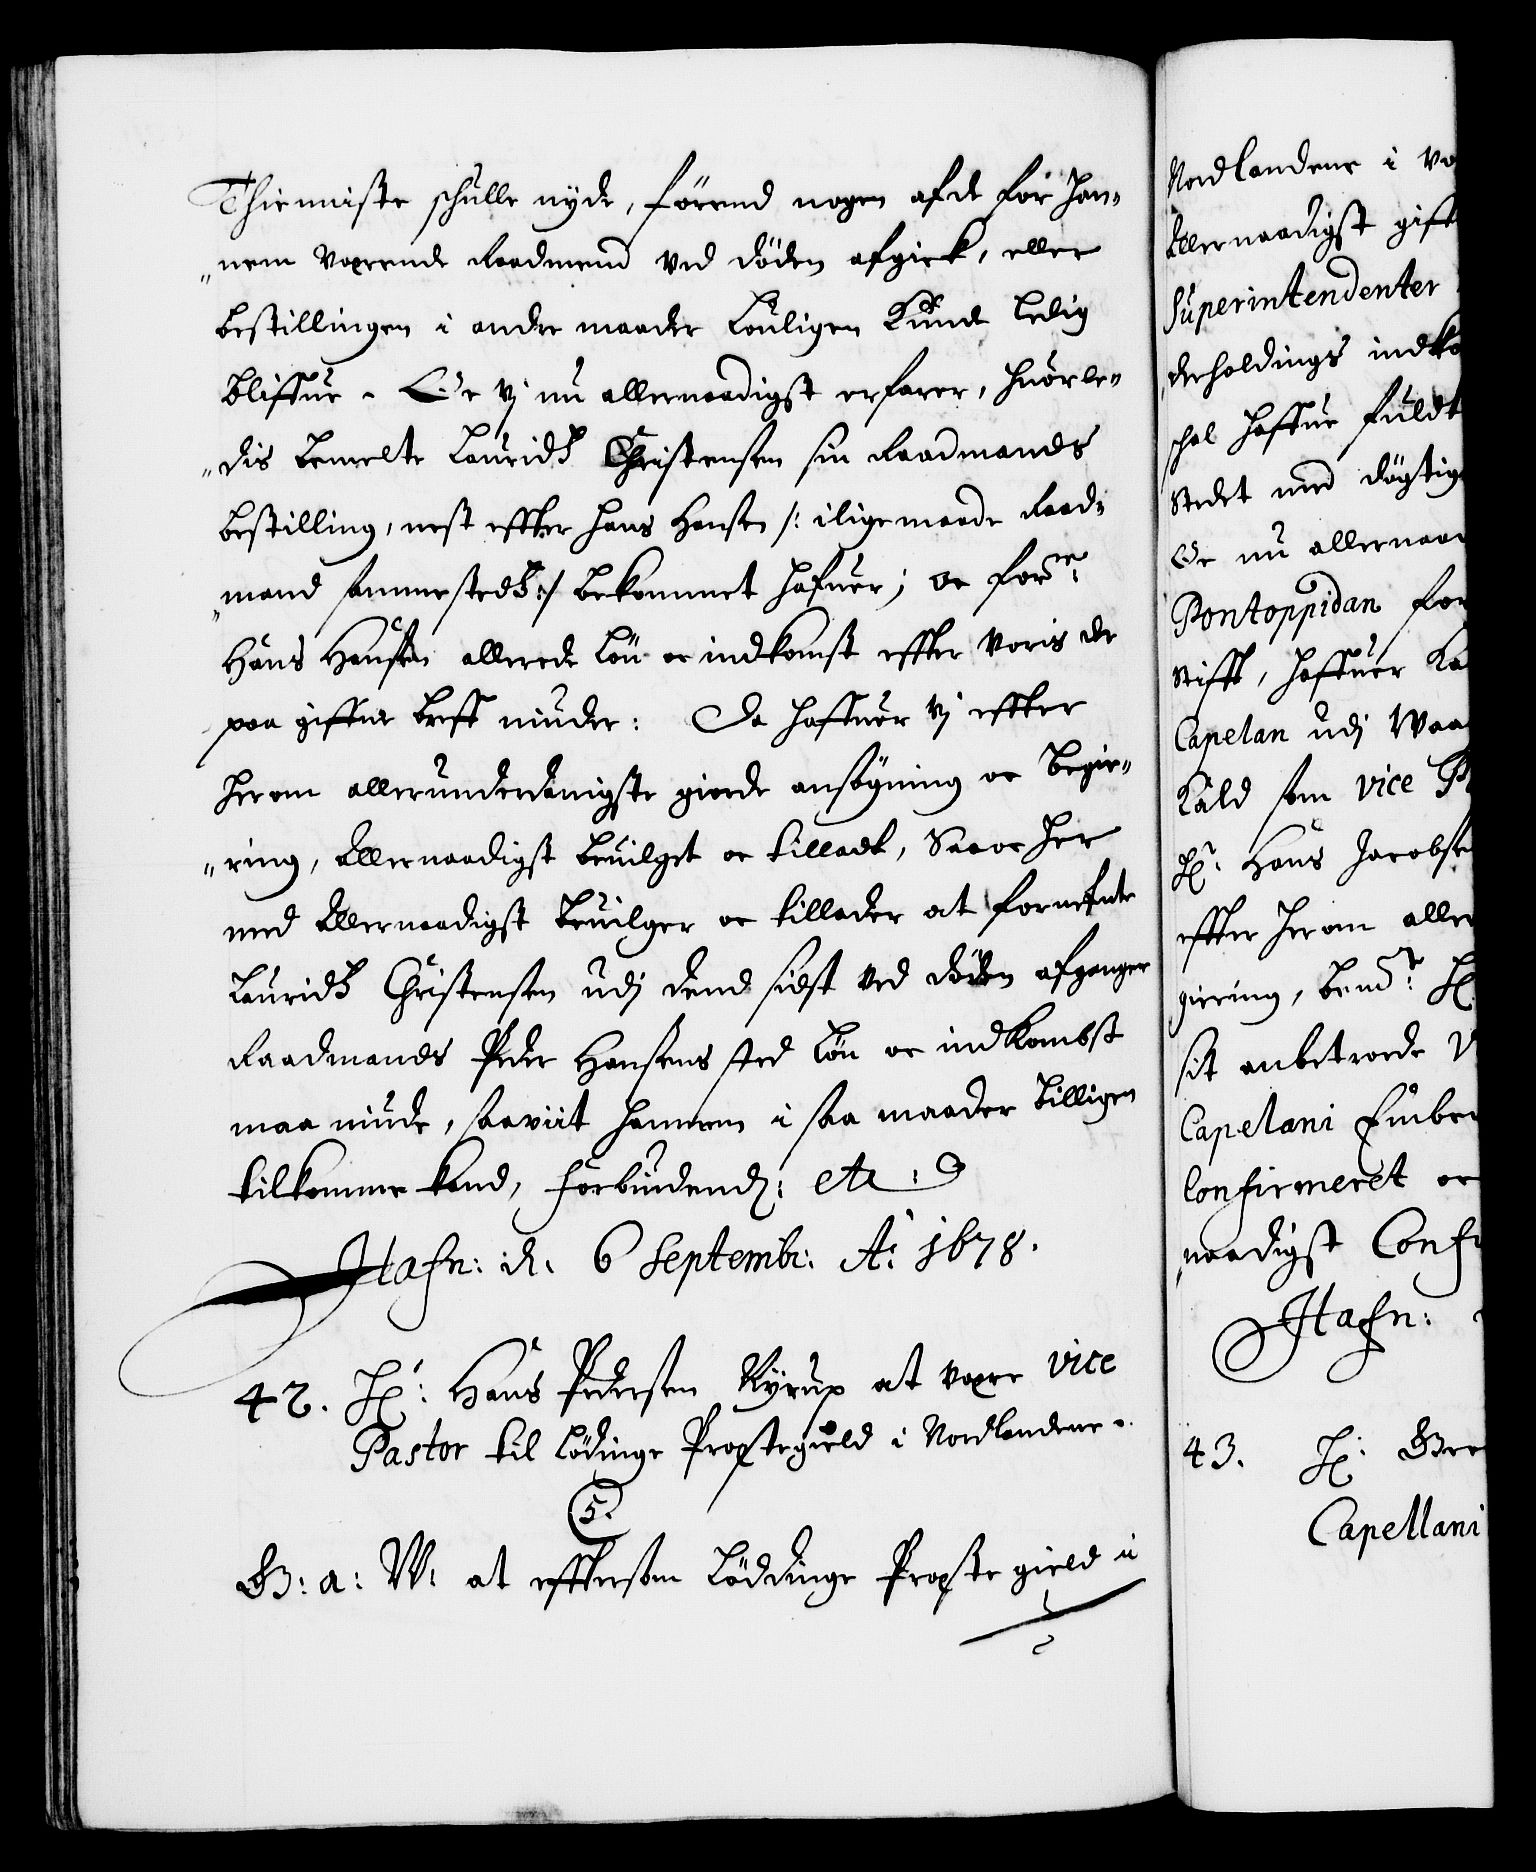 Thienniste schulle nyde, förend nogen af de for han-
"nem værende Raadmend ved döden afgick, eller
bestillingen i andre maader louligen kunde ledig
bliffue. Oc Vj nu allernaadigst erfarer, huorle-
"dis bemelte Lauridtz Christensen sin Raadmands
bestilling, nest effter Hans Hansen /: iligemaade Raad-
"mand sammestedtz :/ bekommet hafuer; oc forne:
Hans Hansen allerede Lön oc indkomst effter voris der
paa giffne breff niuder: Da haffuer Vj effter
herom allerunderdanigste giorde ansögning oc begie-
"ring, Allernaadigst beuilget oc tilladt, Saa oc her
med Allernaadigst beuilger oc tillader at fornefnte
Lauridtz Christensen udj dend sidst ved döden afganger
Raadmands Peder Hansens sted Lön oc indkombst
maa niude, saaviit hannem i saa maader billigen
tilkomme kand, Forbiudend: etc:
Hafn: d. 6 Septembr: Ao: 1678.
42. Hr: Hans Pedersen Ryrup at være vice
Pastor til Lödinge Præstegield i Nordlandene.
5.
G: a: W: at effttersom Löddinge Præste gield i
Nordlandene i vo
Allernaadigst gift
Superintendenter
derholdings indko
schal haffue fuldt
Stedet med dögtig
Oc nu allernaa
Pontoppidan for
Stifft, haffuer Ka
Capelan udj Waa
Kald som vice P
Hr: Hans Jacobse
effter herom aller
giering, bemte: Hr
sit anbetroede V
Capelani Embe
Confirmeret oc
naadigst Conf
Hafn:
43. Hr: Gre
Capellani